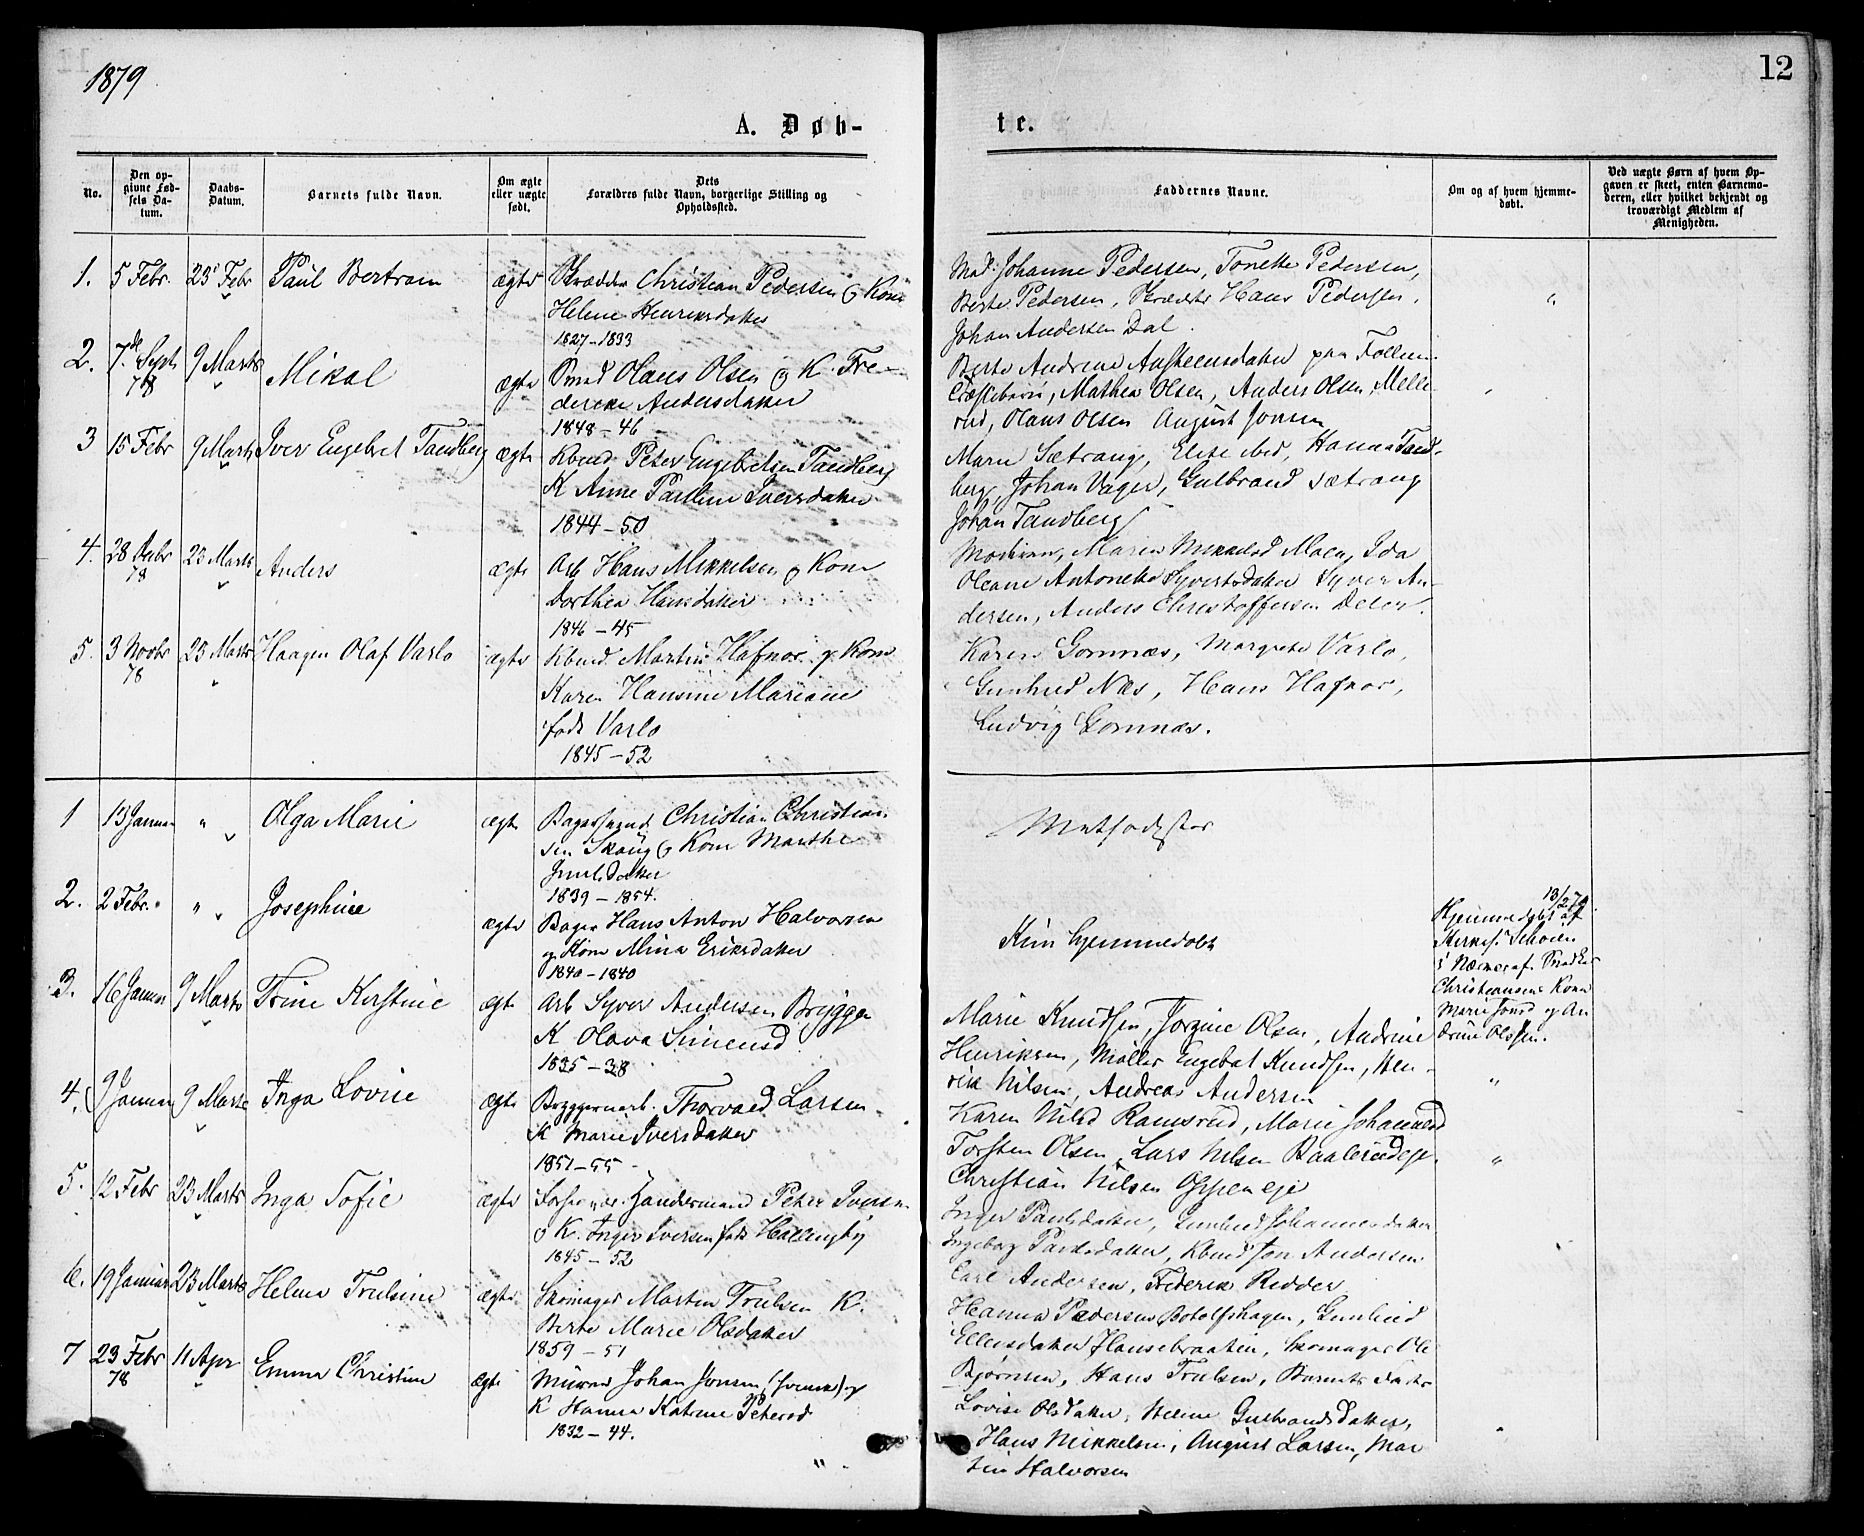 1879
12
A. Døb-
te.
No.
Den op-
givne Fød-
sels Da-
tum.
Daabs-
Datum.
Barnets fulde Navn.
Om ægte
eller uægte
født.
Dets
Forældres fulde Navn, borgerlige Stilling og
Opholdssted.
Faddernes Navne.
Om og af hvem hjemme-
døbt.
Ved uægte Børn af hvem Op-
gaven er skeet, enten Barnemo-
deren, eller hvilket bekjendt og
troværdigt Medlem af
Menigheden.
1. 5 Febr. 23 Febr Paul Bertram ægte Skrædder Christian Pedersen og Kone
Helene Henriksdatter
1827-1833
Mad. Johanne Pedersen, Tonette Pedersen,
Berte Pedersen, Skrædder Hans Pedersen,
Johan Andersen Dal.
"
2. 7de Sept 78 9 Marts Mikal ægte Smed Olaus Olsen og K. Fre-
derikke Andersdatter
1848-46
Berte Andrine Anstensdatter paa Follum
Træsliberi, Mathea Olsen, Anders Olsen Melle-
rud, Olaus Olsen August Jonsen
3 15 Febr 9 Marts Iver Engebret Tandberg ægte Kbmd Peter Engebretsen Tandberg
K Anne Pauline Iversdatter
1844-50
Marie Sætrang, Elise ibid, Hanna Tand-
berg, Johan Vager, Gulbrand Sætrang
Johan Tandberg
4. 28 Decbr 78 23 Marts Anders ægte Arb Hans Mikkelsen og Kone
Dorthea Hansdatter
1846-45
Moderen, Maren Mikkelsd Moen, Ida
Oleane Antonette Syvertsdatter Syver An-
dersen, Anders Christoffersen Delen.
5. 3 Novbr 78 23 Marts Haagen Olaf Varlo ægte Kbmd. Martin Hafnor og Kone
Karen Hansine Mariane
født Varlo
1845-52
Karen Gomnæs, Margrete Varlo,
Gunhild Næs, Hans Hafnor,
Ludvig Gomnæs.
1 13 Januar " Olga Marie ægte Bagersvend Christian Christian-
sen Skaug og Kone Marthe
Juulsdatter
1839-1854.
Methodister
2. 2 Febr. " Josephine ægte Bager Hans Anton Halvorsen
og Kone Mina Eriksdatter
1840-1840
Kun hjemmedøbt
13/2 79.
Hjemmedøbt af
Kirkes. Schøien
i Nærvær af Snedker
Christiansens Kone
Marie Jonsd og An-
drine Olssen.
3. 16 Januar 9 Marts Trine Kirstine ægte Arb Syver Andersen Brygge
K Olava Simensd
1835-38
Marie Knudsen, Jorgine Olsen, Andrine
Henriksen, Møller Engebret Knudsen, Hen-
rik Nilsen, Andreas Andersen
"
4. 9 Januar 9 Marts Inga Lovise ægte Bryggeriarb. Thorvald Larsen
K Marie Iversdatter
1851-55
Karen Nilsd Ramsrud, Marie Johannesd
Torsten Olsen, Lars Nilsen Baalerudeje.
Christian Nilsen Oppeneje
"
5. 12 Febr 23 Marts Inga Sofie ægte Handelsmand Peter Iversen
og K. Inger Iversen født Hallingby
1845-52
Inger Paulsdatter, Gunhild Johannesdatter
Ingeborg Paulsdatter, Kbmd Jon Andersen
Carl Andersen, Frederik Ridder
6. 19 Januar 23 Marts Helma Trulsine ægte Skomager Martin Trulsen K.
Berte Marie Olsdatter
1859-51
Hanna Pedersen Botolfshagen, Gunhild
Ellensdatter Hansebraaten, Skomager Ole
Bjørnsen, Hans Trulsen, Barnets Fader
7 23 Febr 78 11 Apr Emma Christine ægte Murer Johan Jonsen (svensk) og
K Hanna Katrine Petersd
1832-44.
Lovise Olsdatter, Helene Gulbrandsdatter,
Hans Mikkelsen, August Larsen, Mar-
tin Halvorsen
"